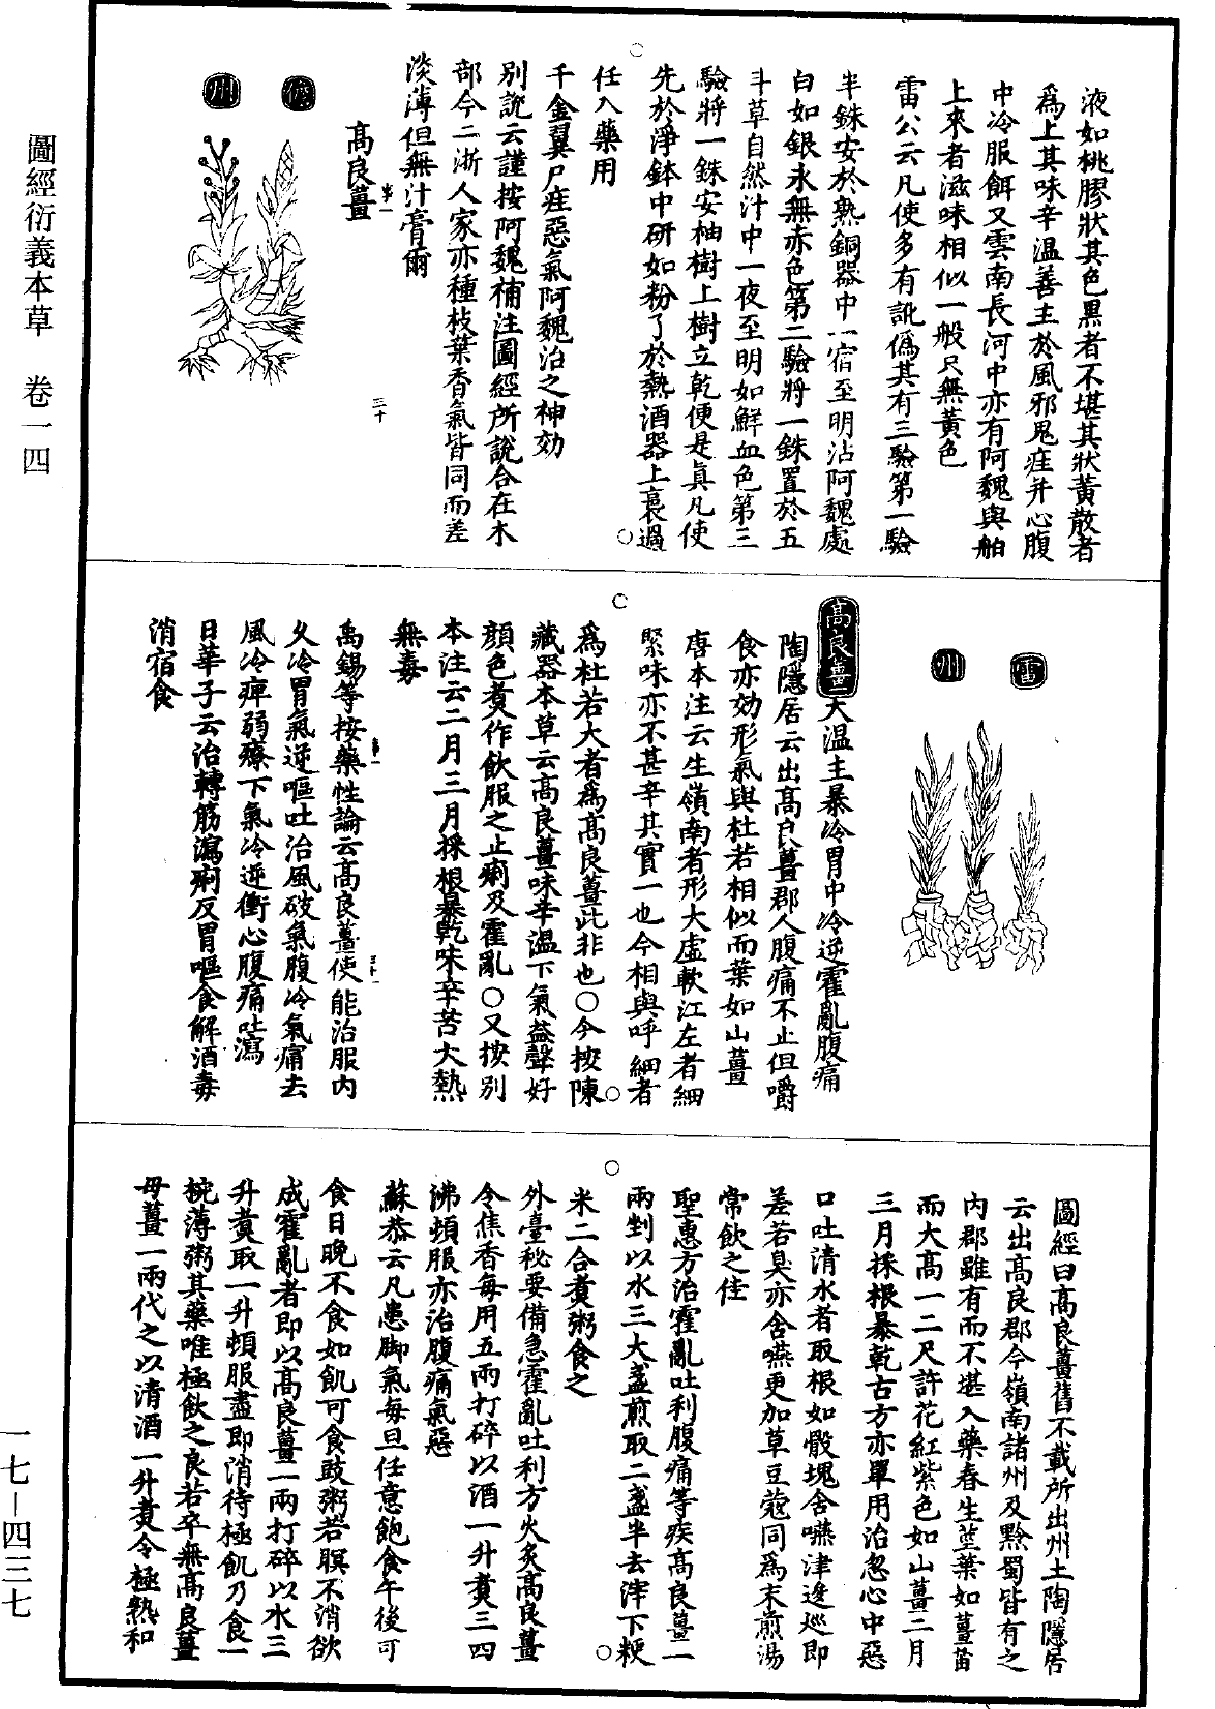 液如桃膠狀其色黑者不堪其狀黃散者
爲上其味辛溫善主於風邪鬼疰并心腹
中冷服餌又雲南長河中亦有阿魏與舶
上來者滋味相似一般只無黃色
雷公云凡使多有訛僞其有三驗第一驗
半銖安於熟銅器中一宿至明沾阿魏處
白如銀永無赤色第二驗將一銖置於五
斗草自然汁中一夜至明如鮮血色第三
驗將一銖安柚樹上樹立乾便是眞凡使
先於淨鉢中研如粉了於熱酒器上裛過
任入藥用
千金翼尸疰惡氣阿魏治之神効
別說云謹按阿魏補注圖經所說合在木
部今二浙人家亦種枝葉香氣皆同而差
淡薄但無汁膏爾
高良薑
儋
州
三十
雷
州
高良薑
大溫主暴冷胃中冷逆霍亂腹痛
陶隱居云出高良薑郡人腹痛不止但嚼
食亦効形氣與杜若相似而葉如山薑
唐本注云生嶺南者形大虛軟江左者細
緊味亦不甚辛其實一也今相與呼細者
爲杜若大者爲高良薑此非也○今按陳
藏器本草云高良薑味辛溫下氣益聲好
顏色煑作飲服之止痢及霍亂○又按別
本注云二月三月採根暴乾味辛苦大熱
無毒
禹錫等按藥性論云高良薑使能治服內
久冷胃氣逆嘔吐治風破氣腹冷氣痛去
風冷痺弱療下氣冷逆衝心腹痛吐瀉
日華子云治轉筋瀉痢反胃嘔食解酒毒
消宿食
圖經曰高良薑舊不載所出州土陶隱居
云出高良郡今嶺南諸州及黔蜀皆有之
內郡雖有而不堪入藥春生莖葉如薑苗
而大高一二尺許花紅紫色如山薑二月
三月採根暴乾古方亦單用治忽心中惡
口吐清水者取根如骰塊含嚥津逡巡即
差若臭亦含嚥更加草豆蔻同爲末煎湯
常飲之佳
聖惠方治霍亂吐利腹痛等疾高良薑一
兩剉以水三大盞煎取二盞半去滓下粳
米二合煑粥食之
外臺秘要備急霍亂吐利方火炙高良薑
令焦香每用五兩打碎以酒一升煑三四
沸頓服亦治腹痛氣惡
蘇恭云凡患脚氣每旦任意飽食午後可
食日晚不食如飢可食豉粥若瞑不消欲
成霍亂者即以高良薑一兩打碎以水三
升煑取一升頓服盡即消待極飢乃食一
椀薄粥其藥唯極飲之良若卒無高良薑
母薑一兩代之以清酒一升煑令極熟和
圖經衍義本草　卷一四
一七—四三七